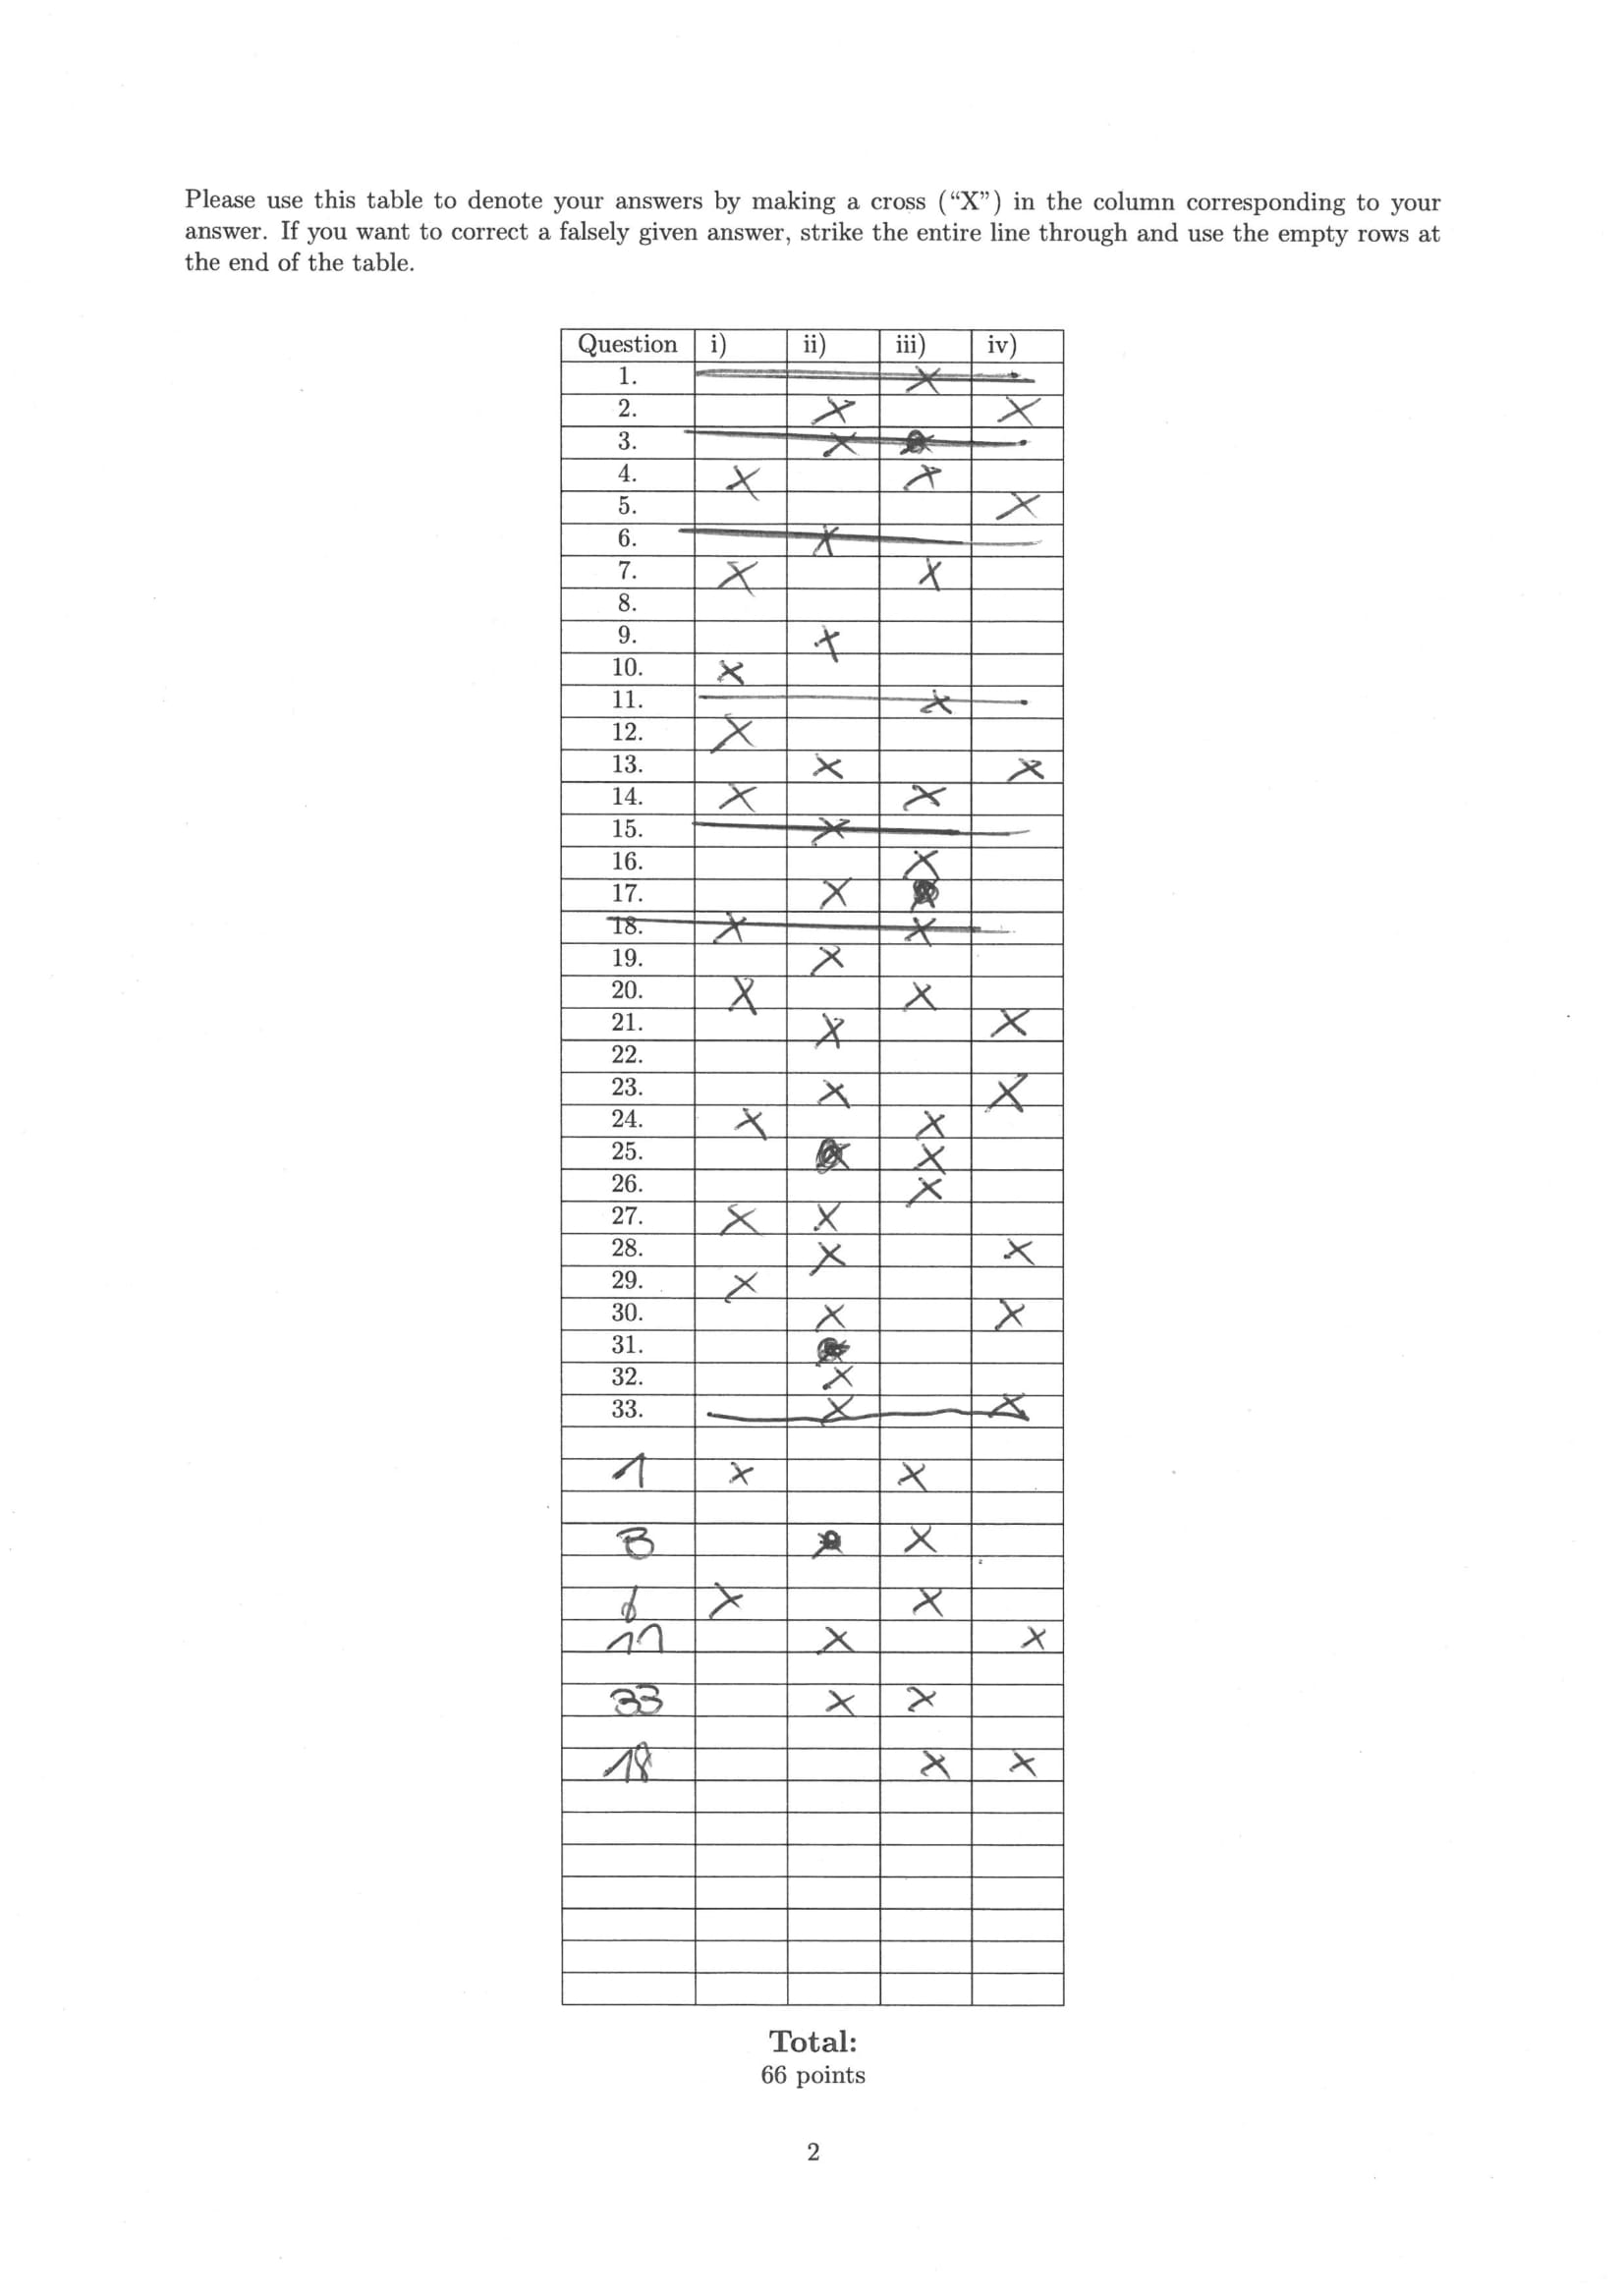 Please use this table to denote your answers by making a cross (“X”) in the column corresponding to your
answer. If you want to correct a falsely given answer, strike the entire line through and use the empty rows at
the end of the table.
Question i) ii) iii) iv)
1. X
2. X X
3. X
4. X X
5. X
6. X
7. X X
8.
9. X
10. X
11. X
12. X
13. X X
14. X X
15. X
16. X
17. X
18. X X
19. X
20. X X
21. X X
22.
23. X X
24. X X
25. X
26. X
27. X X
28. X X
29. X
30. X X
31.
32. X
33. X X
1 X X
3 X
6 X X
11 X X
33 X X
18 X X
Total:
66 points
2